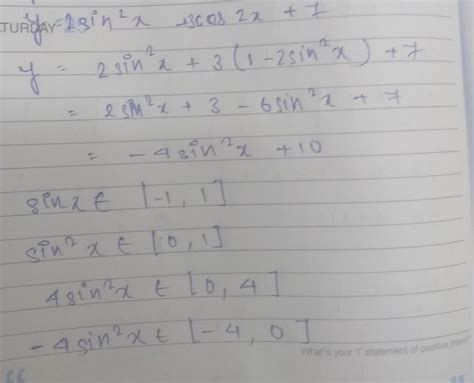 y = 2sin²x +3cos 2x + 7
TURDAY
y = 2sin²x + 3(1-2sin²x) + 7
= 2sin²x + 3 - 6sin²x + 7
= -4sin²x +10
sinx ∈ [-1, 1]
sin²x ∈ [0, 1]
4sin²x ∈ [0, 4]
-4sin²x ∈ [-4, 0]
What's your 'I' statement of positive intent